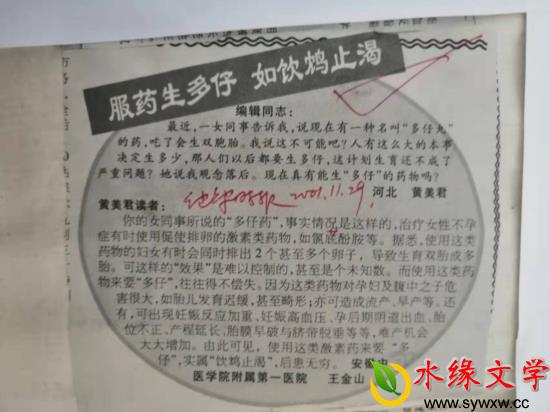 服药生多仔 如饮鸩止渴
编辑同志：
最近，一女同事告诉我，说现在有一种名叫“多仔丸”
的药，吃了会生双胞胎。我说这不可能吧？人有这么大的本事
决定生多少，那人们以后都要生多仔，这计划生育还不成了
严重问题？她说我观念落后。现在真有能生“多仔”的药物吗？
2001.11.29. 河北 黄美君
黄美君读者：
你的女同事所说的“多仔药”，事实情况是这样的，治疗女性不孕
症有时使用促使排卵的激素类药物，如氯底酚胺等。据悉，使用这类
药物的妇女有时会同时排出2个甚至多个卵子，导致生育双胎或多
胎。可这样的“效果”是难以控制的，甚至是个未知数。而使用这类药
物来要“多仔”，往往得不偿失。因为这类药物对孕妇及腹中之子危
害很大，如胎儿发育迟缓，甚至畸形；亦可造成流产、早产等。还
有，可出现妊娠反应加重、妊娠高血压、孕后期阴道出血、胎
位不正、产程延长、胎膜早破与脐带脱垂等等，难产机会
大大增加。由此可见，使用这类激素药来要“多
仔”，实属“饮鸩止渴”，后患无穷。 安徽中
医学院附属第一医院 王金山
水缘文学
www.sywxw.cc